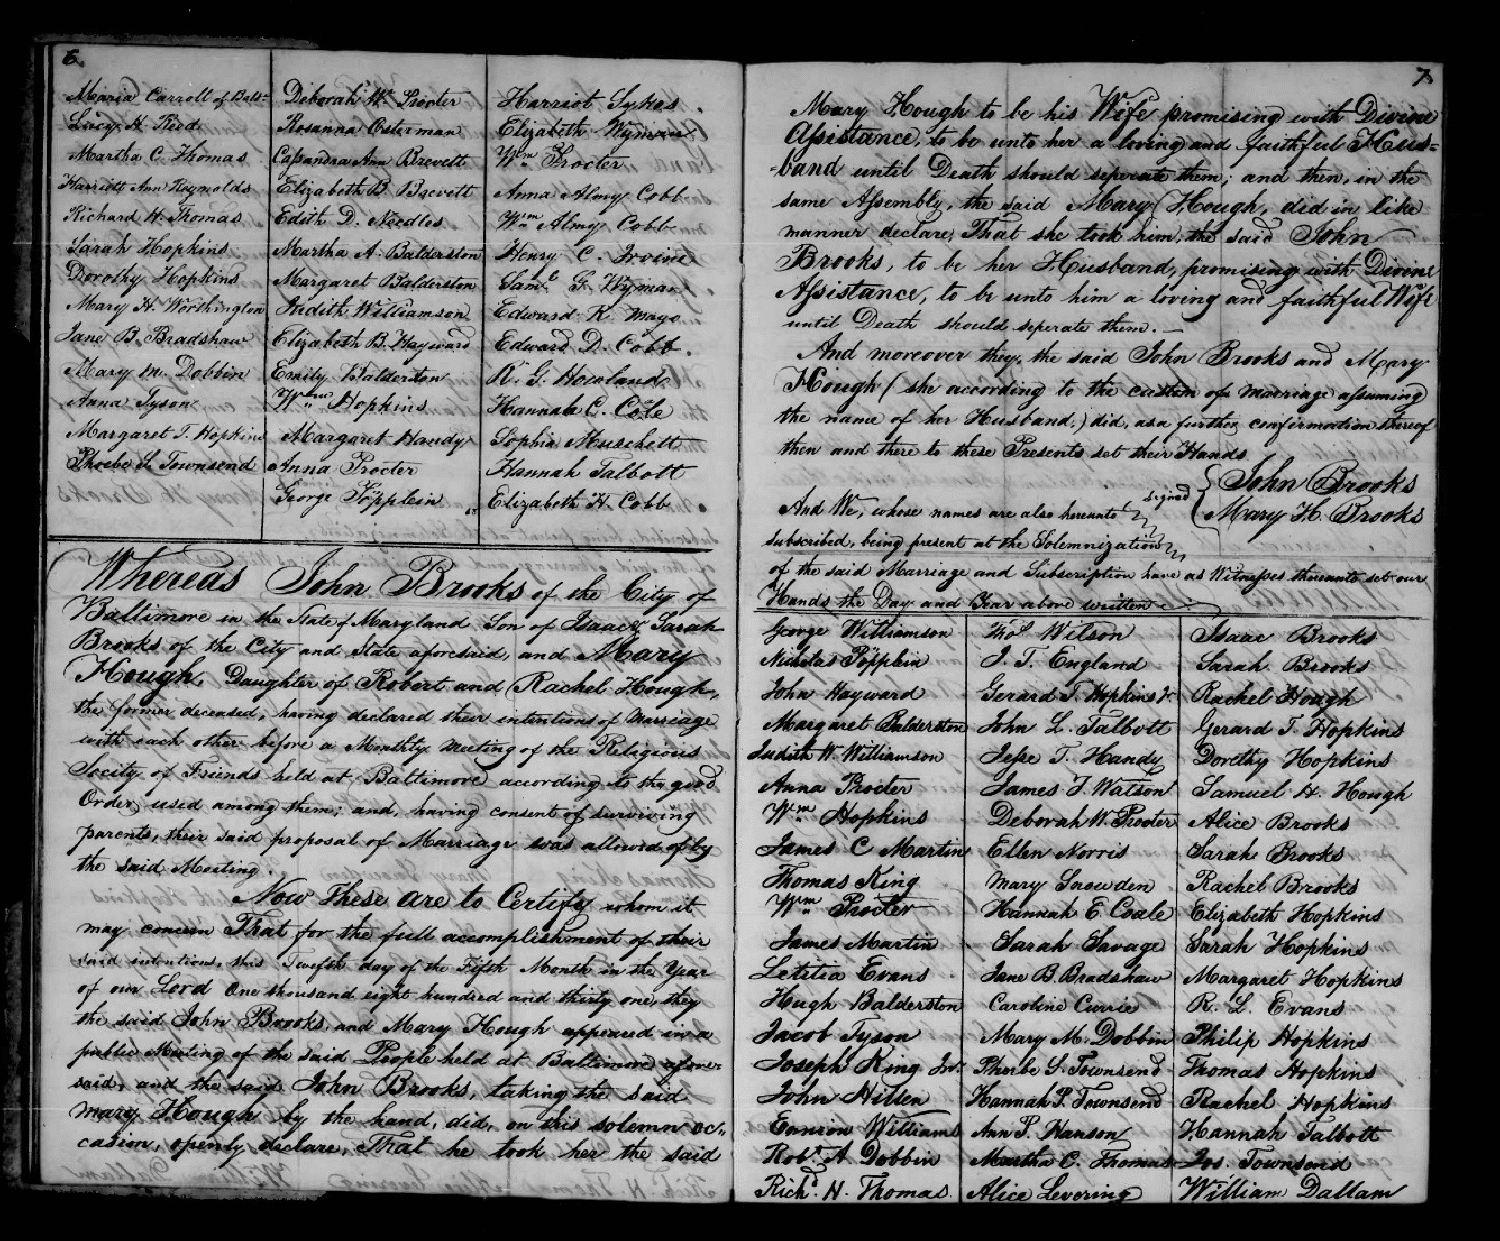 6.
Maria Carroll of Balt.
Lucy H. Reod
Martha C. Thomas
Harriett Ann Reynolds
Richard H. Thomas
Sarah Hopkins
Dorothy Hopkins
Mary H. Worthington
Jane B. Bradshaw
Mary M. Dobbin
Anna Tyson
Margaret T. Hopkins
Phoebe S. Townsend
Deborah W. Procter
Rosanna Osterman
Cassandra Ann Brevett
Elizabeth B. Brevitt
Edith D. Needles
Martha A. Balderston
Margaret Balderston
Judith Williamson
Elizabeth B. Hayward
Emily Balderston
Wm. Hopkins
Margaret Handy
Anna Procter
George Pöpplein
Harriot Sykes
Elizabeth Wyman
Wm. Procter
Anna Almy Cobb
Wm. Almy Cobb
Henry C. Irvine
Saml. G. Wyman
Edward R. Mayo
Edward D. Cobb.
R. G. Howland
Hannah C. Cole
Sophia Muschett
Hannah Talbott
Elizabeth H. Cobb
Whereas John Brooks of the City of
Baltimore in the State of Maryland Son of Isaac & Sarah
Brooks of the City and State aforesaid, and Mary
Hough, Daughter of Robert and Rachel Hough,
the former deceased, having declared their intentions of Marriage
with each other before a Monthly Meeting of the Religious
Socity of Friends held at Baltimore according to the good
Order, used among them; and, having consent of surviving
parents, their said proposal of Marriage was allowed of by
the said Meeting.
Now These are to Certify whom it
may concern That for the full accomplishment of their
said intentions, this Twelfth day of the Fifth Month in the Year
of our Lord One thousand eight hundred and thirty one, they
the said John Brooks, and Mary Hough appeared in a
public Meeting of the said People held at Baltimore afore
said, and the said John Brooks, taking the said
Mary Hough by the hand, did, on this solemn oc„
casion, openly declare, That he took her the said
7.
Mary Hough to be his Wife promising with Divine
Assistance, to be unto her a loving and faithful Hus=
-band until Death should seperate them; and then, in the
same Assembly, the said Mary Hough, did in like
manner declare, That she took him, the said John
Brooks, to be her Husband, promising with Divine
Assistance, to be unto him a loving and faithful Wife
until Death should seperate them.—
And moreover they, the said John Brooks and Mary
Hough (she according to the custom of marriage assuming
the name of her Husband,) did, as a further confirmation thereof
then and there to these Presents set their Hands
signed
John Brooks
Mary H. Brooks
And We, whose names are also hereunto
subscribed, being present at the Solemnization
of the said Marriage and Subscription have as Witnesses thereunto set our
Hands the Day and Year above written
George Williamson
Nicholas Pöpplein
John Hayward
Margaret Balderston
Judith W. Williamson
Anna Procter
Wm. Hopkins
James C Martin
Thomas King
Wm. Procter
James Martin
Letitia Evans
Hugh Balderston
Jacob Tyson
Joseph King Jnr.
John Hillen
Ennion Williams
Robt. A Dobbin
Richd. H. Thomas.
Thos. Wilson
J. T. England
Gerard T. Hopkins Jr.
John L. Talbott
Jesse T. Handy
James T. Watson
Deborah W. Procter
Ellen Norris
Mary Snowden
Hannah E Coale
Sarah Savage
Jane B. Bradshaw
Caroline Currie
Mary M. Dobbin
Phoebe S. Townsend
Hannah P. Townsend
Ann P. Hanson
Martha C. Thomas
Alice Levering
Isaac Brooks
Sarah Brooks
Rachel Hough
Gerard T. Hopkins
Dorothy Hopkins
Samuel H. Hough
Alice Brooks
Sarah Brooks
Rachel Brooks
Elizabeth Hopkins
Sarah Hopkins
Margaret Hopkins
R. L. Evans
Philip Hopkins
Thomas Hopkins
Rachel Hopkins
Hannah Talbott
Jos. Townsend
William Dallam